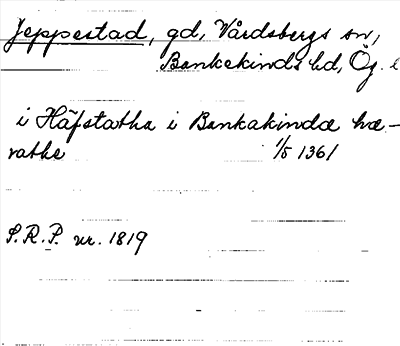 Jeppestad, gd, Vårdsbergs sn,
Bankekinds hd, Ög.
i Häfstatha i Bankakinda hæ-
rathe 1/5 1361
S.R.P. nr. 1819